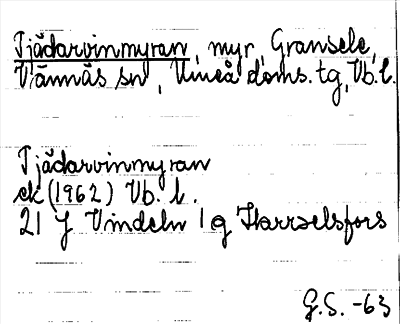 Tjädarvinmyran, myr, Gransele,
Vännäs sn, Umeå doms. tg, Vb. l.
Tjädarvinmyran
ek (1962) Vb. l.
21 J Vindeln 1 g Harrselsfors
G.S. -63